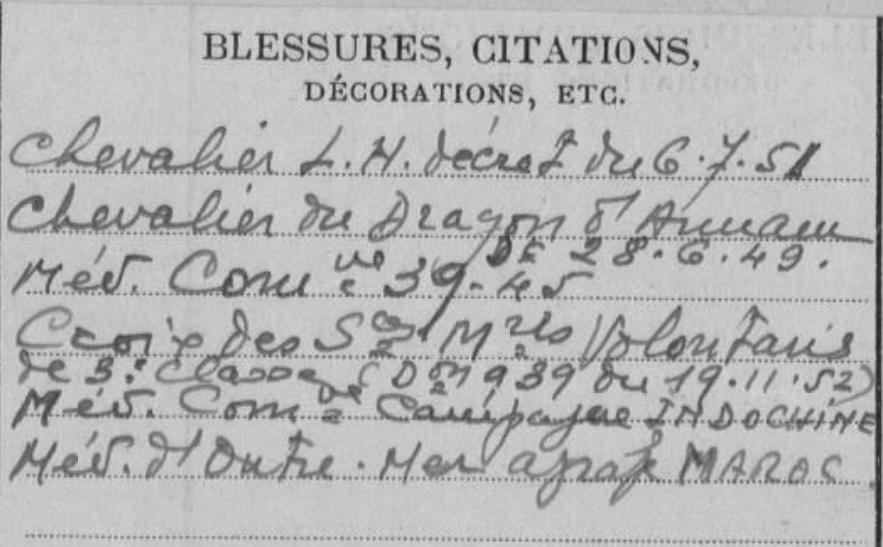 BLESSURES, CITATIONS,
DÉCORATIONS, ETC.
Chevalier L.H. décret du 6.7.51
Chevalier du Dragon d'Annam
DE 28.6.49.
Méd. Com ve 39.45
Croix des S ces Mres Volontaires
de 3e Classe (Don 939 du 19.11.52)
Méd. Com ve Campagne INDOCHINE
Méd. d'Outre-Mer agrafe MAROC